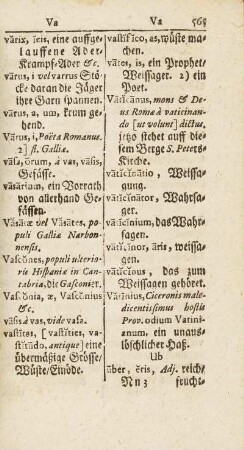 Va Va 565
värix, ĭcis, eine auffge-
lauffene Ader/
Krampf-Ader &c.
vārus, i vel varrus Stö-
cke daran die Jäger
ihre Garn spannen.
vārus, a, um, krum ge-
hend.
vārus, i, Poëta Romanus.
2) fl. Galliæ.
vāsa, ōrum, â vas, vāsis,
Gefässe.
vāsārium, ein Vorrath
von allerhand Ge-
fässen.
Vāsātæ vel Vāsātes, po-
puli Galliæ Narbon-
nensis.
Vascŏnes, populi ulterio-
ris Hispaniæ in Can-
tabria, die Gasconier.
Vascŏnia, æ, Vascŏnius
&c.
vāsis à vas, vide vasa.
vastĭtes, [vastĭtĭes, va-
stĭtūdo, antiquæ] eine
übermäßige Grösse/
Wüste/Einöde.
vastĭfĭco, as, wüste ma-
chen.
vātes, is, ein Prophet/
Weissager. 2) ein
Poet.
Vātĭcānus, mons & De-
us Romæ à vaticinando
[ut volunt] dictus,
jtzo stehet auff die-
sem Berge S. Peters-
Kirche.
vātĭcĭnātĭo, Weissa-
gung.
vātĭcĭnātor, Wahrsa-
ger.
vātĭcĭnium, das Wahr-
sagen.
vātĭcĭnor, āris, weissa-
gen.
vātĭcĭnus, das zum
Weissagen gehöret.
Vātīnius, Ciceronis male-
dicentissimus hostis
Prov. odium Vatini-
anum, ein unaus-
löschlicher Haß.
Ub
ūber, ĕris, Adj. reich/
N n 3 frucht-